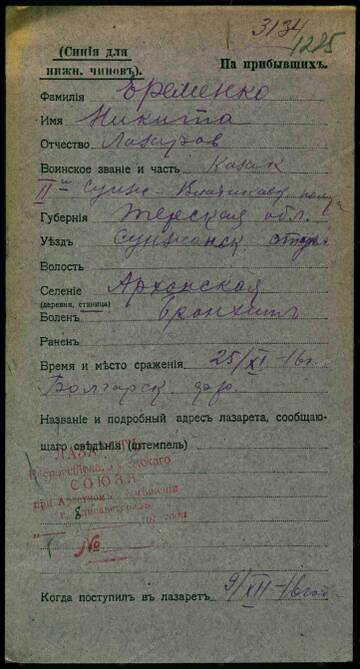 3134
1285
(Синія для
нижн. чиновъ).
На прибывшихъ.
Фамилія Еременко
Имя Никита
Отчество Лазаров
Воинское званіе и часть Казак
II й Сунж-Владикавк полка
Губернія Терская обл.
Уѣздъ Сунженск отдѣл
Волость
Селеніе Архонская
(деревня, станица)
Боленъ бронхитъ
Раненъ
Время и мѣсто сраженія 25/XI-16г.
Болгарск. дер
Названіе и подробный адресъ лазарета, сообщаю-
щаго свѣдѣнія (штемпель)
ЛАЗАРЕТЪ
СОЮЗА
при
г.
№
Когда поступилъ въ лазаретъ 9/XII-16 год